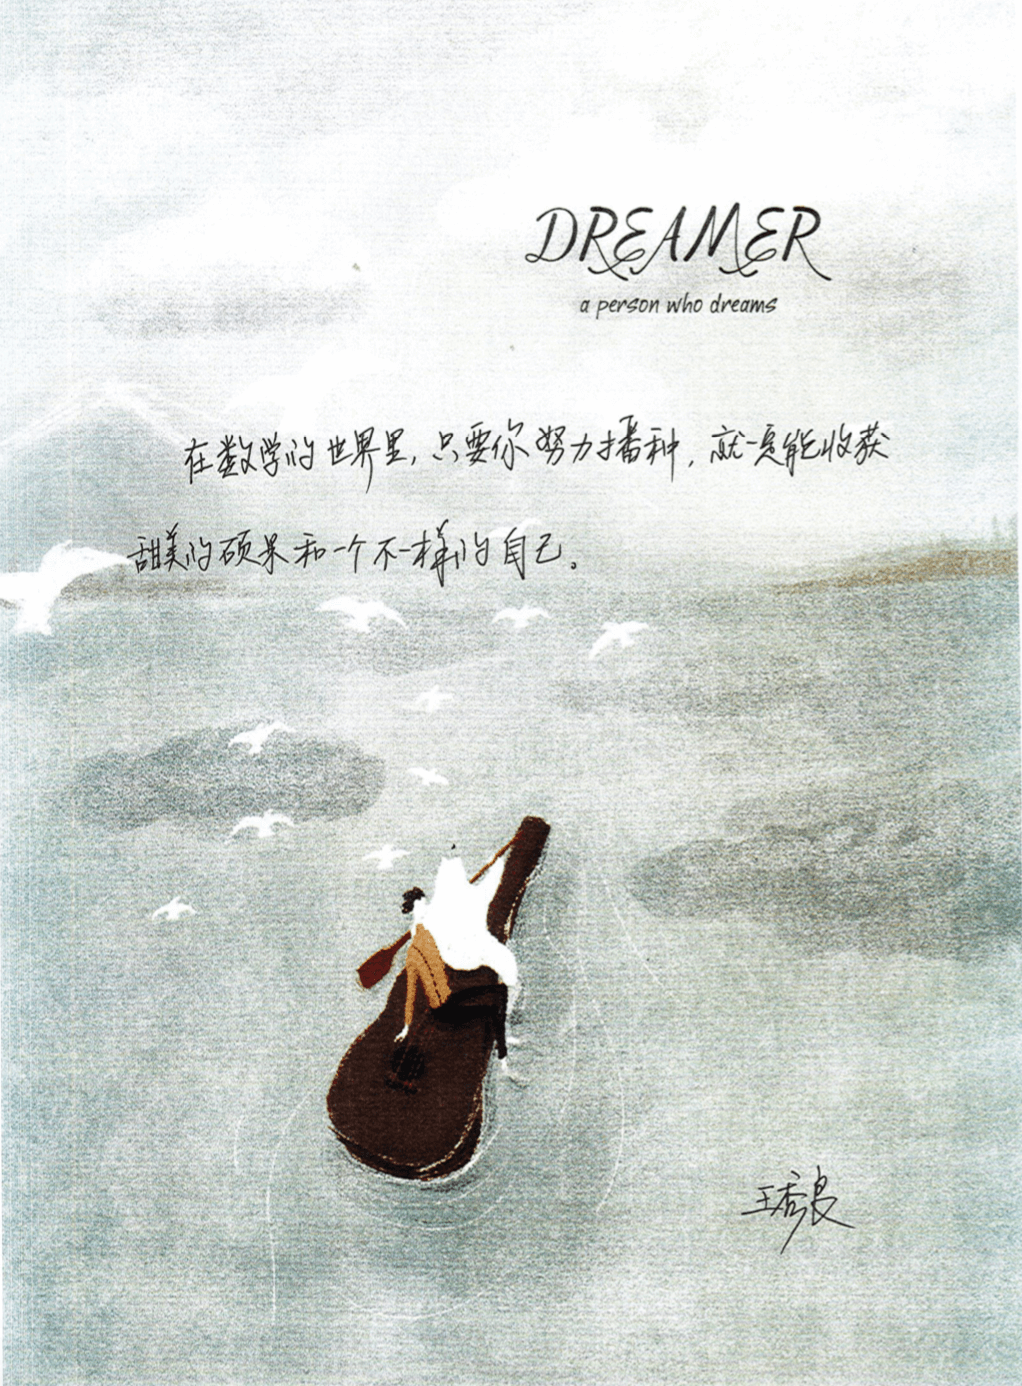 DREAMER
a person who dreams
在数学的世界里,只要你努力播种,就一定能收获
甜美的硕果和一个不一样的自己。
王秀良